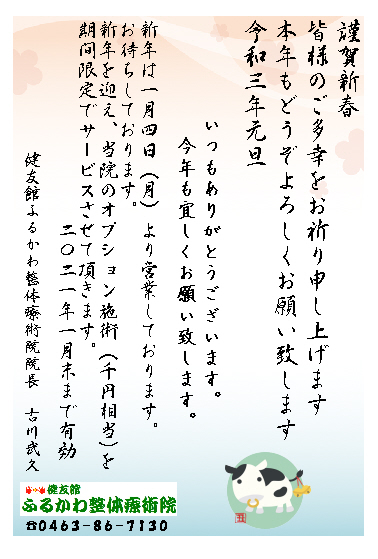 謹賀新春
皆様のご多幸をお祈り申し上げます
本年もどうぞよろしくお願い致します
令和三年元旦
いつもありがとうございます。
今年も宜しくお願い致します。
新年は一月四日（月）より営業しております。
お待ちしております。
新年を迎え、当院のオプション施術（千円相当）を
期間限定でサービスさせて頂きます。
二〇二一年一月末まで有効
健友館ふるかわ整体療術院院長　古川武久
丑
健友館
ふるかわ整体療術院
☎0463-86-7130